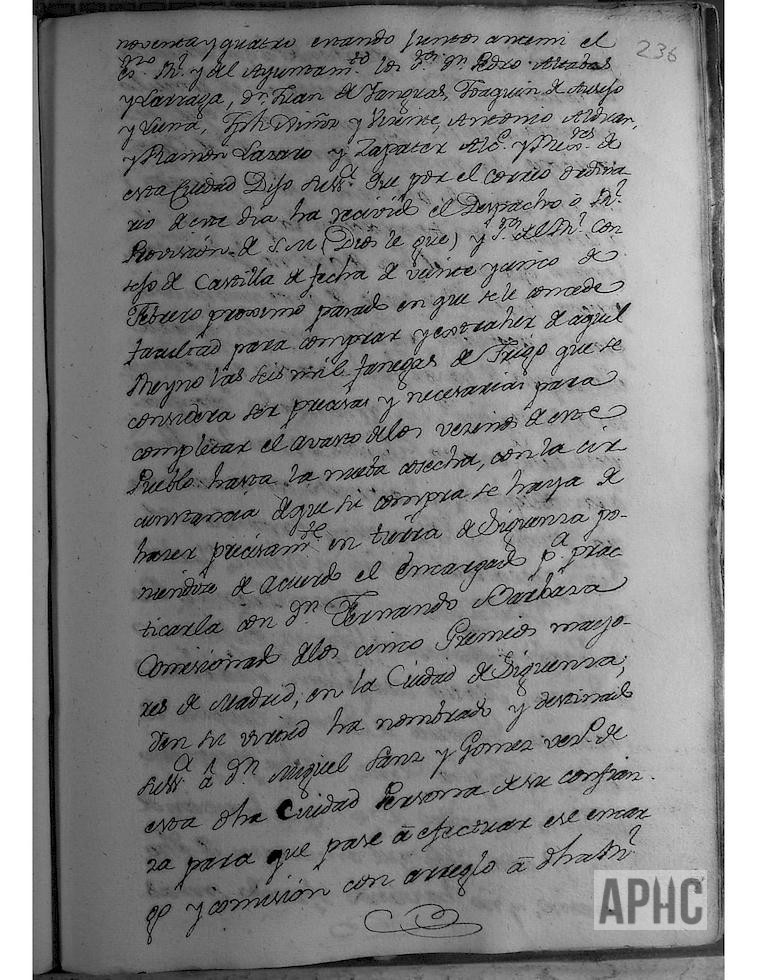 236
noventa y quatro estando juntos antemi el
es.no R.l y del Ayuntam.to los S.res D.n Pedro
y Larraga, D.n Juan de Yanguas, Joaquin de
y Luna, Jph Muñoz y Vicente, Antonio
y Ramon Lazaro y Zapater Alc.e y Reg.res de
esta Ciudad Dijo su M.d que por el correo ordina
rio de este dia ha recivido el Despacho o R.l
Provision de S.M (Dios le gũe) y S.res del R.l Con
sejo de Castilla de fecha de veinte y cinco de
Febrero proximo pasado en que se le concede
facultad para comprar y extraher de aquel
Reyno las seis mil fanegas de Trigo que se
considera ser precisas y necesarias para
completar el avasto de los vezinos de este
Pueblo hasta la nueba cosecha, con la cir
cunstancia de que su compra se haya de
hazer precisam.te en tierra de Siguenza po-
niendose de acuerdo el Encargado p.a prac
ticarla con D.n Fernando Barbara
Comisionado de los cinco Gremios mayo-
res de Madrid, en la Ciudad de Siguenza,
Y en su virtud ha nombrado y destinado
su M.d a D.n Miguel Sanz y Gomez vez.o de
esta dha Ciudad Persona de su confian-
za para que pase á efectuar ese encar
go y comision con arreglo á dha R.l
APHC